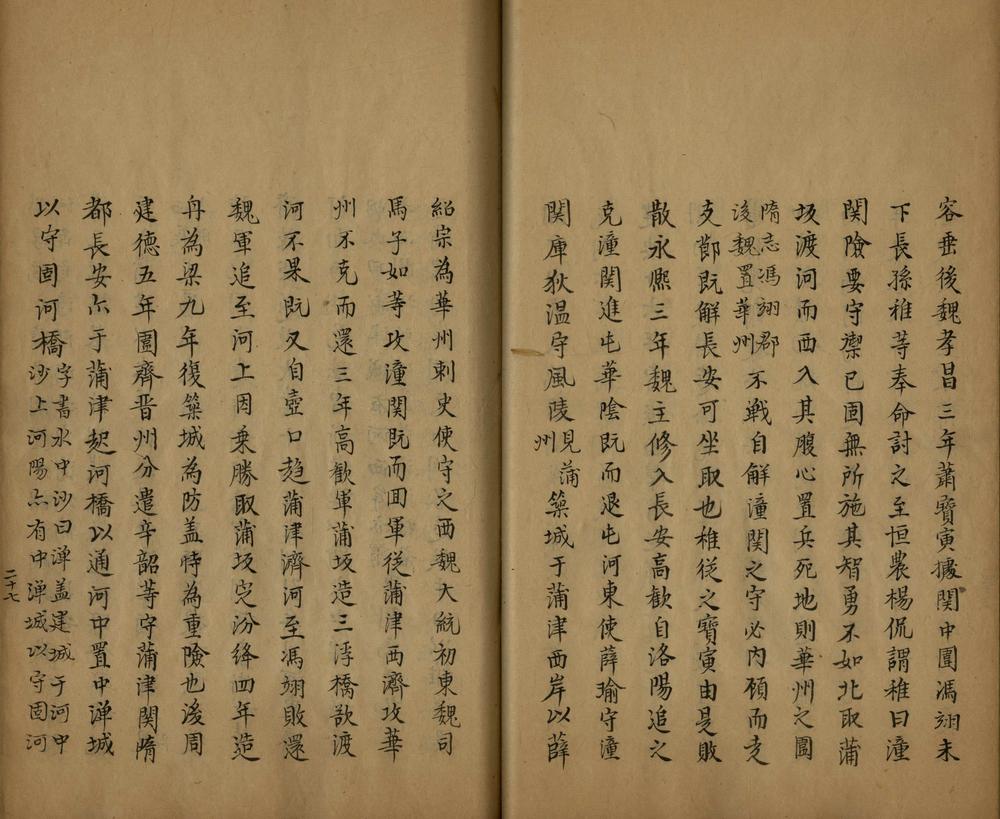 容垂後魏孝昌三年蕭寶寅據関中圍馮翊未
下長孫稚等奉命討之至恒農楊侃謂稚曰潼
関險要守禦已固無所施其智勇不如北取蒲
坂渡河而西入其腹心置兵死地則華州之圍
隋志馮翊郡
後魏置華州
不戰自解潼関之守必内顧而走
支節既解長安可坐取也稚從之寶寅由是敗
散永熙三年魏主修入長安高歡自洛陽追之
克潼関進屯華陰既而退屯河東使薛瑜守潼
関庫狄温守風陵
見蒲
州
築城于蒲津西岸以薛
紹宗為華州刺史使守之西魏大統初東魏司
馬子如等攻潼関既而回軍從蒲津西濟攻華
州不克而還三年高歡軍蒲坂造三浮橋欲渡
河不果既又自壺口趨蒲津濟河至馮翊敗還
魏軍追至河上因乗勝取蒲坂定汾絳四年造
舟為梁九年復築城為防盖恃為重險也後周
建德五年圍齊晋州分遣辛韶等守蒲津関隋
都長安亦于蒲津起河橋以通河中置中潬城
以守固河橋
字書水中沙曰潬盖建城于河中
沙上河陽亦有中潬城以守固河
二十七